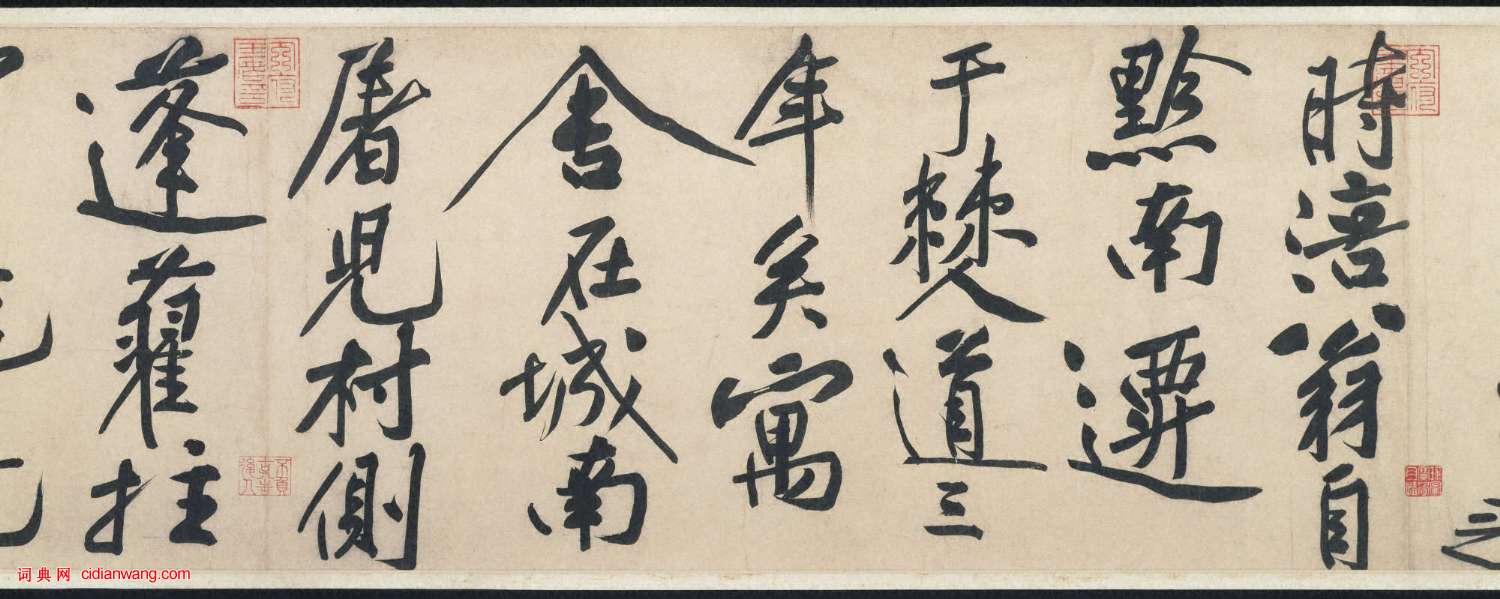 時涪翁自
黔南遷
于棘道三
年矣寓
舍在城南
屠兒村側
蓬藋柱
词典网 cidianwang.com